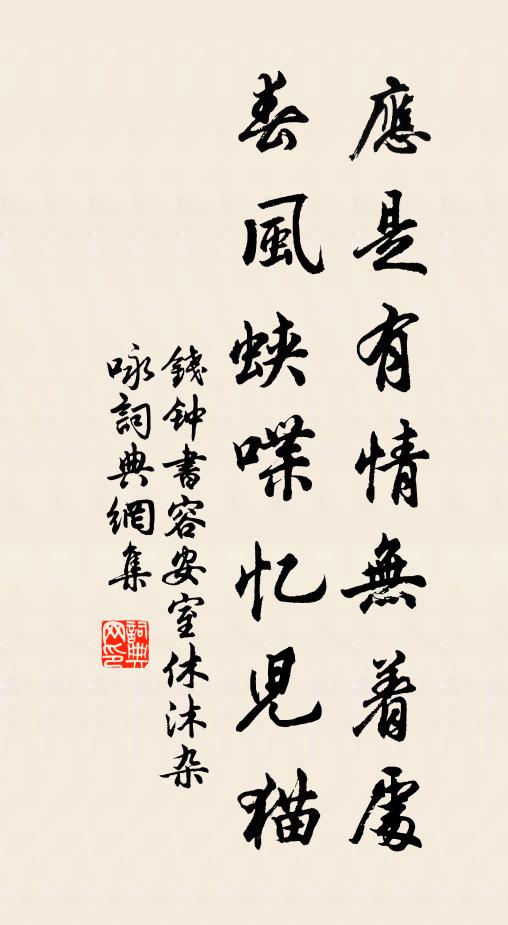 應是有情無着處
春風蛱喋忆兒猫
錢钟書容安室休沐杂
咏詞典網集
詞典
网印